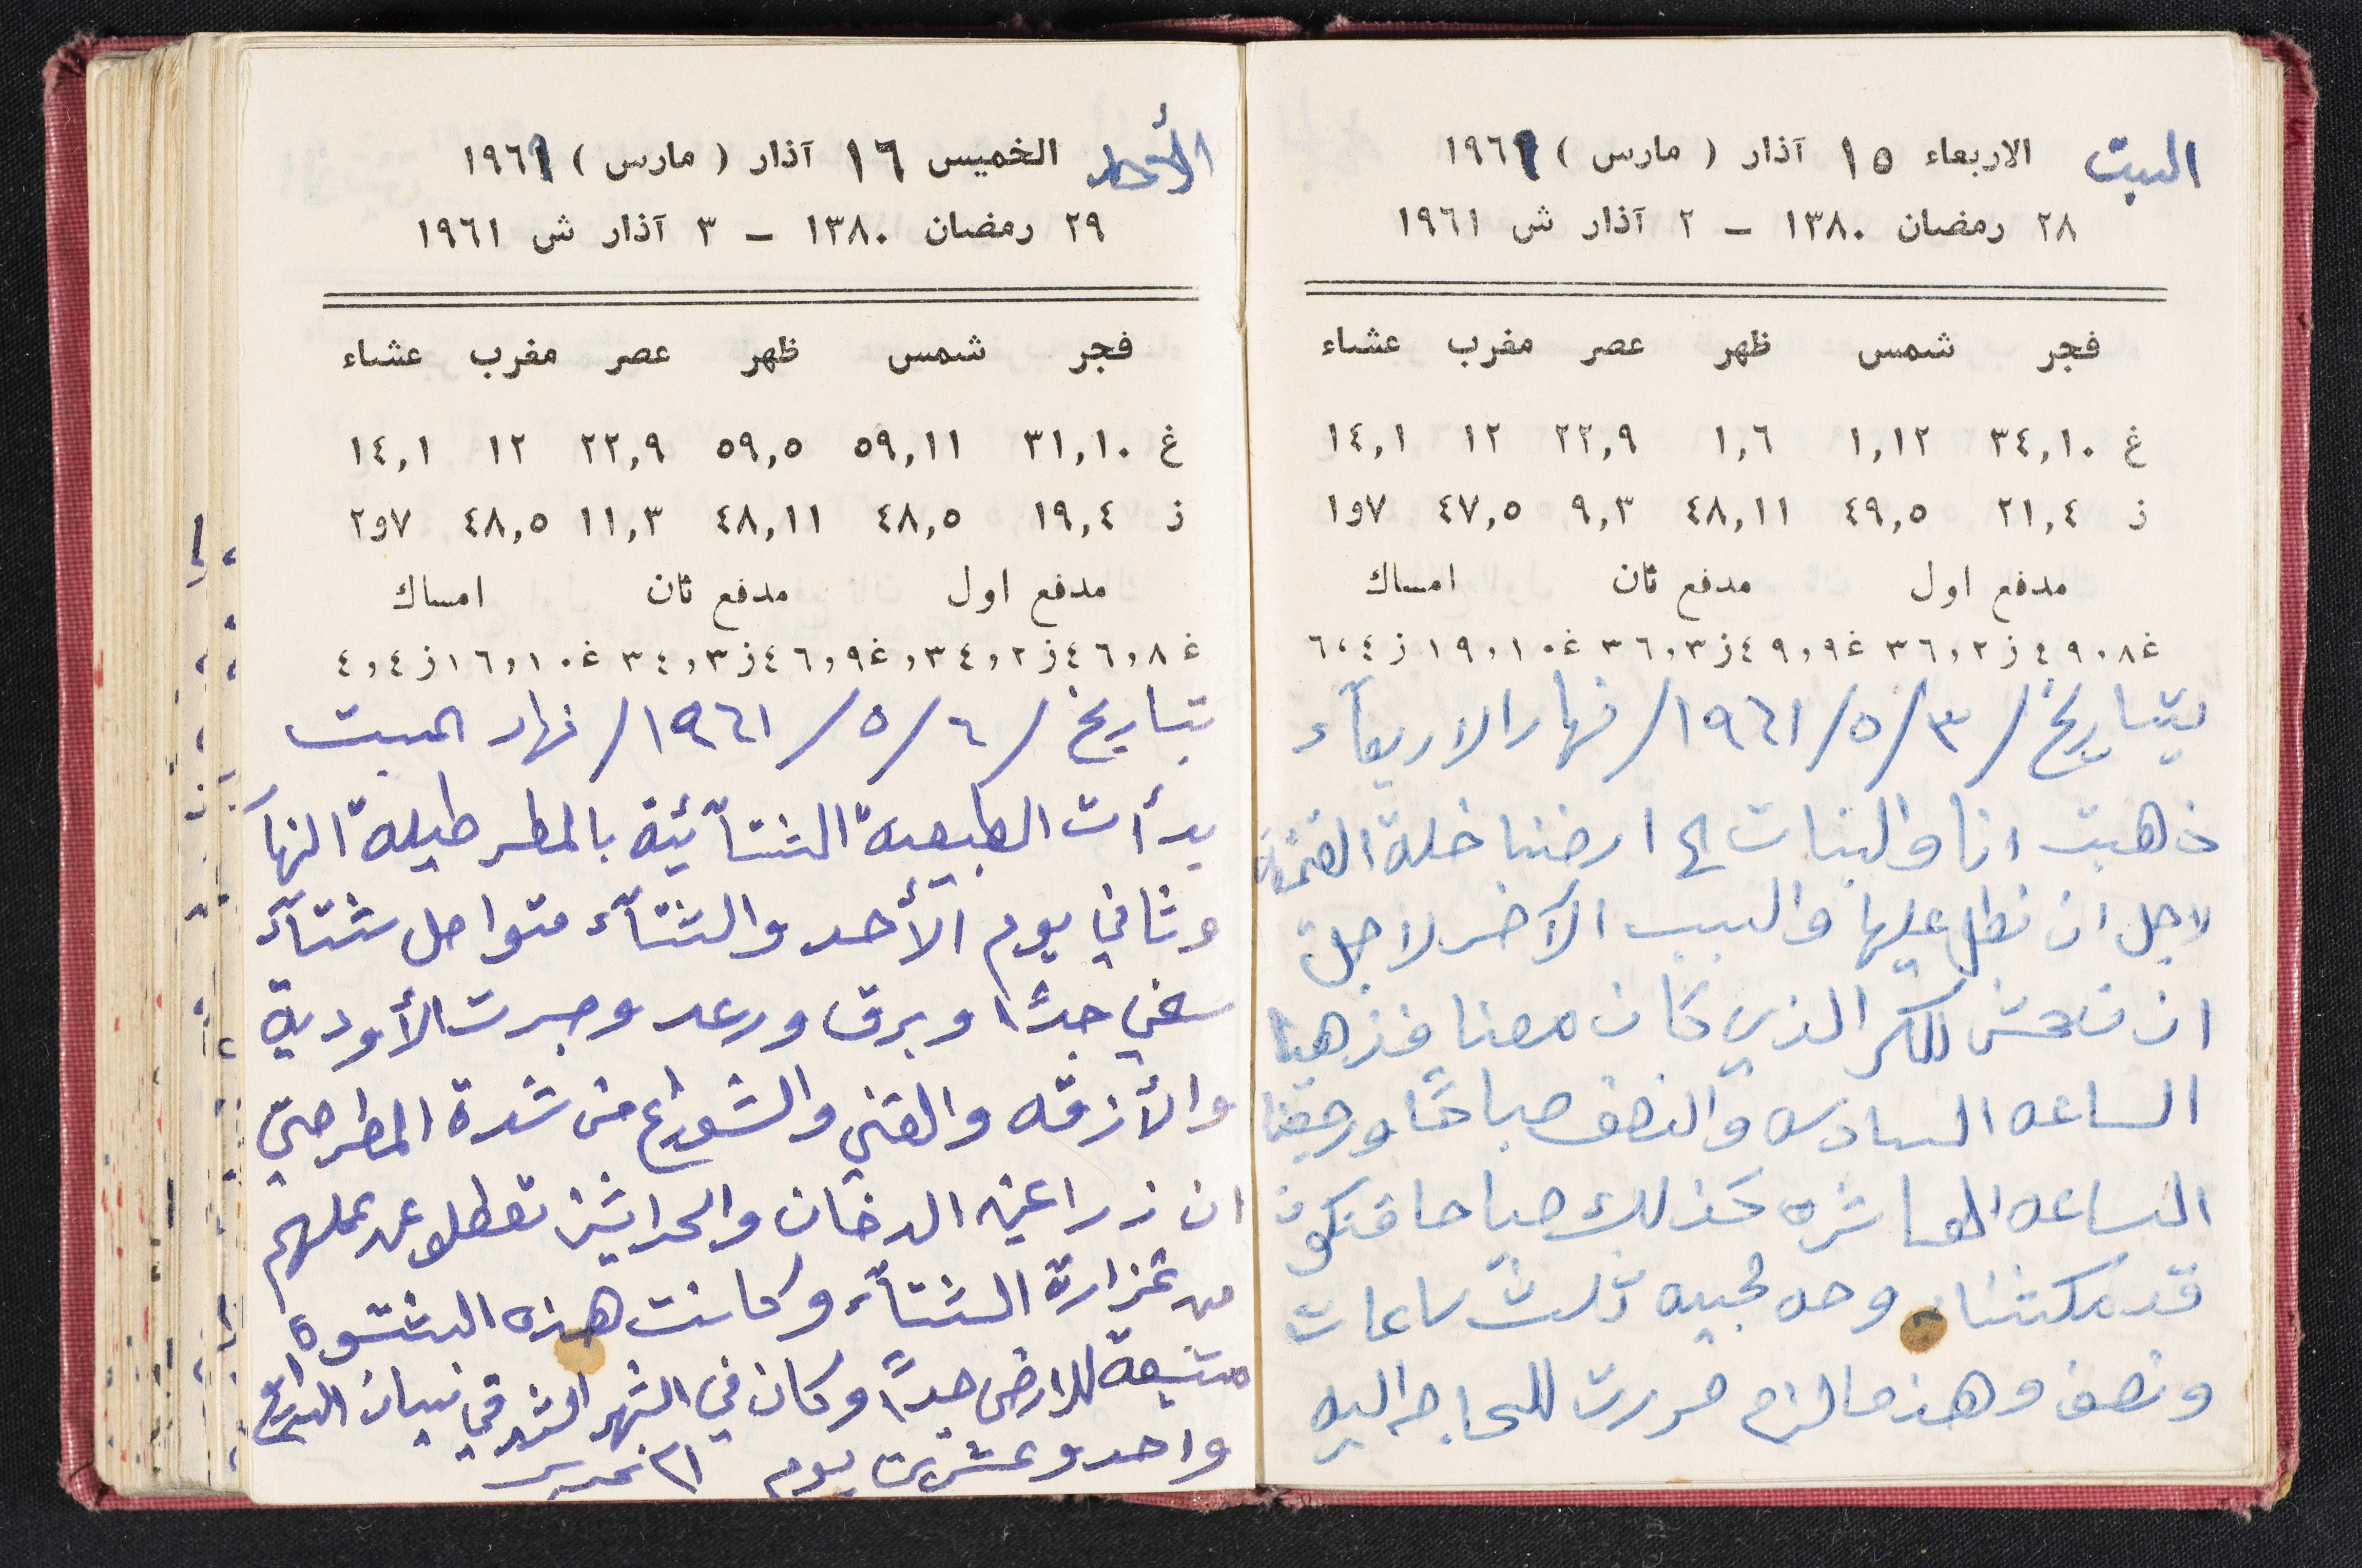 السبت الاربعاء ١٥ آذار ( مارس ) ١٩٦١
٢٨ رمضان ١٣٨٠ – ٢ آذار ش ١٩٦١
فجر شمس ظهر عصر مغرب عشاء
غ ٣٤,١٠ ١,١٢ ١,٦ ٢٢,٩ ١٢ ١٤,١
ز ٢١,٤ ٤٩,٥ ٤٨,١١ ٩,٣ ٤٧,٥ ٧و١
مدفع اول مدفع ثان امساك
غ٤٩,٨ ز٣٦,٢ غ٤٩,٩ ز٣٦,٣ غ١٩,١٠ ز٦,٤
بتاريخ /٣/٥/١٩٦١/ نهار الاربعآء
ذهبت انا والبنات الى ارضنا خلة
لاجل ان نطل عليها والسبب الآخر لاجل
ان الذي كان معنا فذهبنا
الساعه السادسه والنصف صباحًا ورجعنا
الساعه العاشره كذلك صباحا فنكون
قد مكثنا ثلث ساعات
ونصف وهذه ما لزم حررت للحاجه اليه
الأحد الخميس ١٦ آذار ( مارس ) ١٩٦١
٢٩ رمضان ١٣٨٠ – ٣ آذار ش ١٩٦١
فجر شمس ظهر عصر مغرب عشاء
غ ٣١,١٠ ٥٩,١١ ٥٩,٥ ٢٢,٩ ١٢ ١٤,١
ز ١٩,٤ ٤٨,٥ ٤٨,١١ ١١,٣ ٤٨,٥ ٧و٢
مدفع اول مدفع ثان امساك
غ٤٦,٨ ز٣٤,٢, غ٤٦,٩ ز٣٤,٣ غ١٦,١٠ ز٤,٤
بتاريخ /٦/٥/١٩٦١/ نهار السبت
بدأت الطبيعة الشتآئية بالمطر طيلة النهآ
وثاني يوم الأحد والشتآء متواصل شتآء
سخي جدًا وبرق ورعد وجرت الأودية
والأزقه والقني والشوراع من شدة المطر حتى
ان زراعين الدخان والحراثين تعطلو عن عملهم
من غزارة الشتآء وكانت هذه الشتوه
للارض جدًا وكان في الشهر الشرقي نيسان الواقع
واحد وعشرين يوم ٢١ تحرير